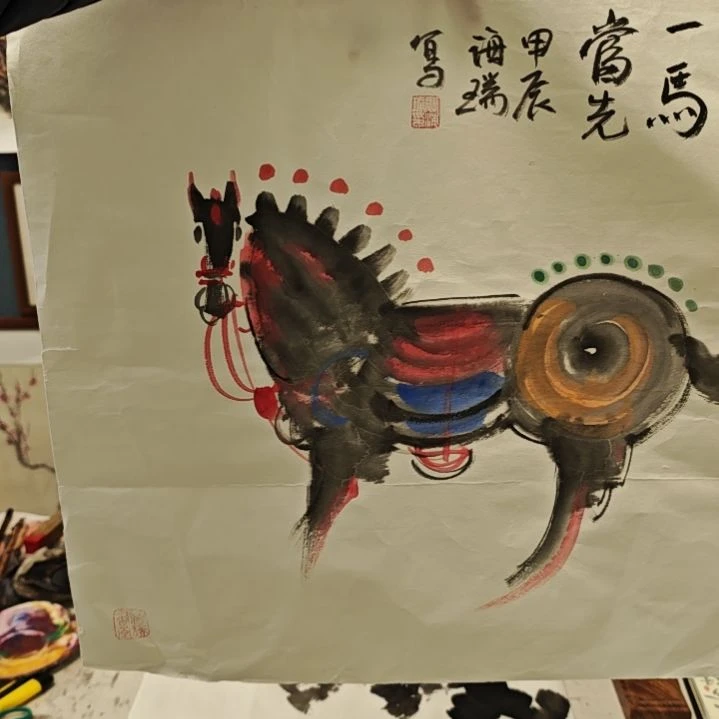 一馬
當先
甲辰
海瑞
寫